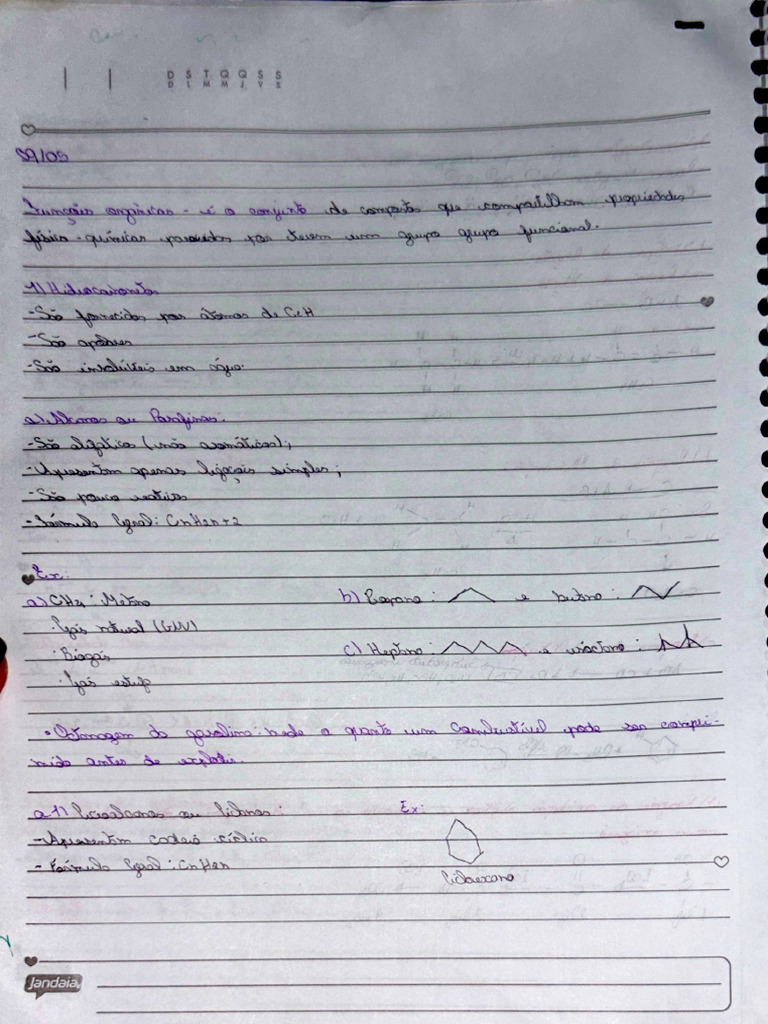 D S T Q Q S S
D L M M J V S
29/05
Funções orgânicas - é o conjunto de compostos que compartilham propriedades
físico-químicas parecidas por terem um grupo grupo funcional.
1) Hidrocarbonetos
-São fornecidos por átomos de C e H
-São apolares
-São insolúveis em água.
a) Alcanos ou Parafinas:
-São alifáticos (não aromáticos);
-Apresentam apenas ligações simples;
-São pouco reativos
-Fórmula Geral: CnH2n+2
Ex:
a) CH4: Metano
b) Propano: e butano:
·Gás natural (GNV)
·Biogás
c) Heptano: e isoctano:
·Gás estufa
•Octanagem da gasolina: mede o quanto um combustível pode ser compri-
mido antes de explodir.
a.1) Cicloalcanos ou Ciclanos: Ex:
-Apresentam cadeia cíclica
- Fórmula Geral: CnH2n
Ciclohexano
Jandaia